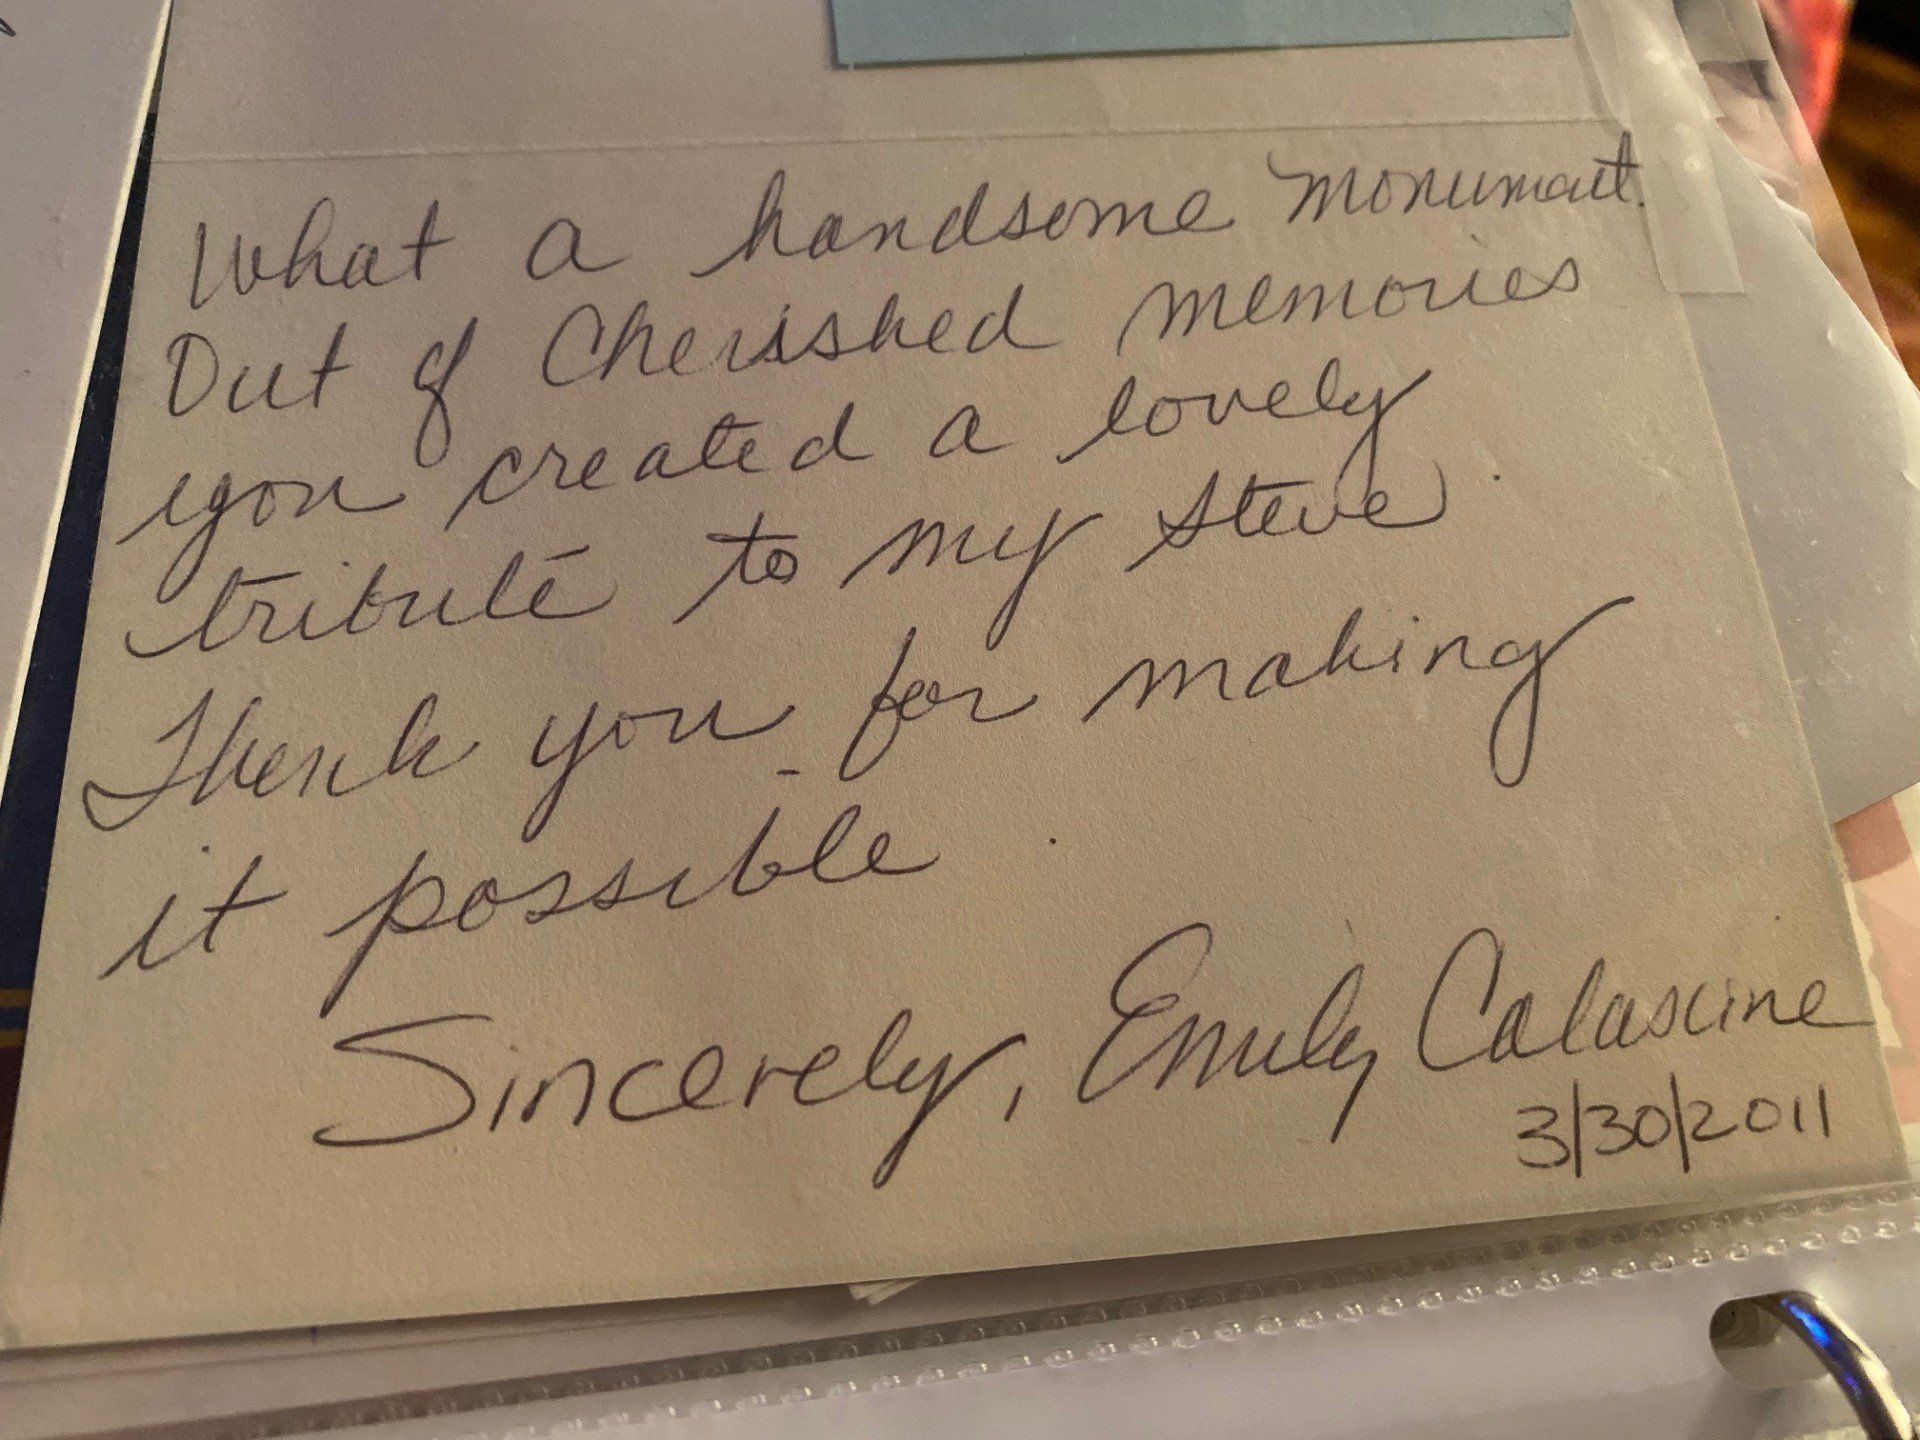 What a handsome monument.
Out of Cherished memories
you created a lovely
tribute to my Steve.
Thank you for making
it possible.
Sincerely, Emily Calascine
3/30/2011